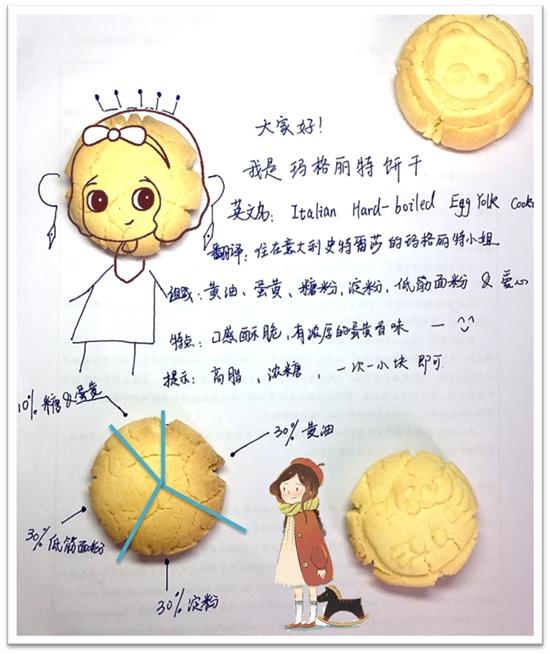 大家好!
我是 玛格丽特 饼干
英文名: Italian Hard-boiled Egg Yolk Cooki
翻译: 住在意大利史特蕾莎的玛格丽特小姐
组成: 黄油、蛋黄、糖粉, 淀粉, 低筋面粉 & 爱心
特点: 口感酥脆, 有浓厚的蛋黄香味 —
提示: 高脂、浓糖, 一次一小块 即可
10% 糖&蛋黄
30% 黄油
30% 低筋面粉
30% 淀粉